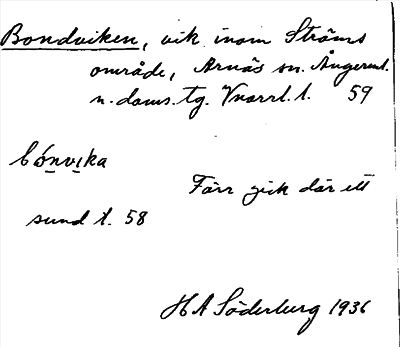 Bondviken, vik inom Ströms
område, Arnäs sn. Ångerml.
n. doms. tg. Vnorrl. l. 59
bónvika
Förr gick där ett
sund l. 58
H A Söderberg 1936